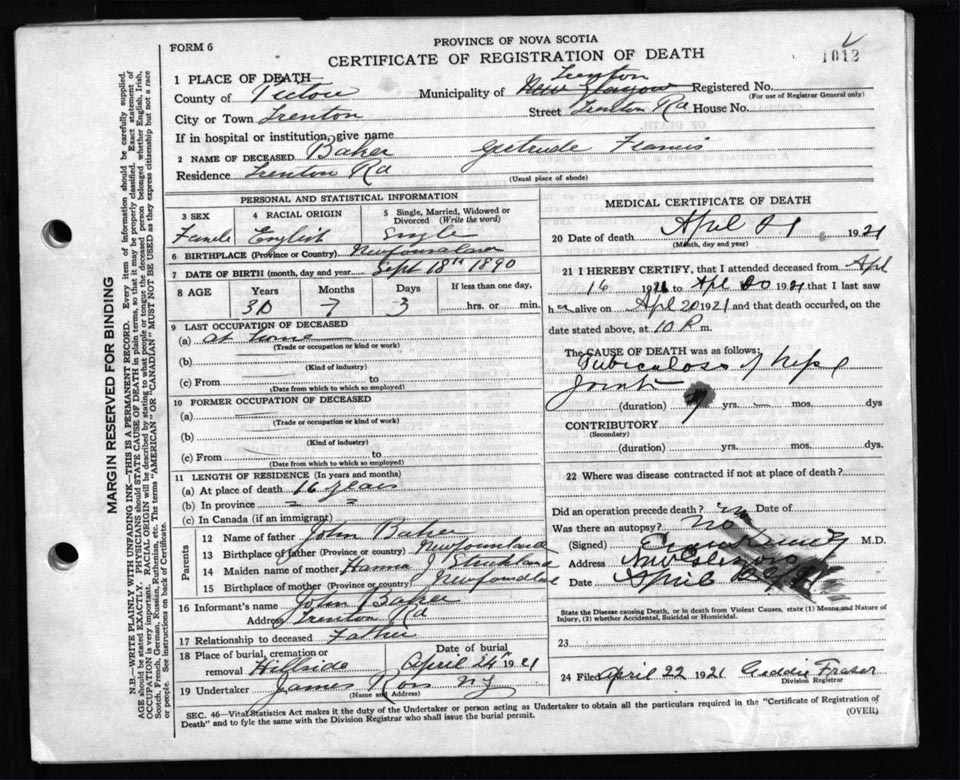 PROVINCE OF NOVA SCOTIA
FORM 6
CERTIFICATE OF REGISTRATION OF DEATH
1812
1 PLACE OF DEATH
Trenton
County of Pictou Municipality of New Glasgow Registered No.
(For use of Registrar General only)
City or Town Trenton Street Trenton Rd House No.
If in hospital or institution, give name
2 NAME OF DECEASED Baker Gertrude Francis
Residence Trenton Rd
(Usual place of abode)
PERSONAL AND STATISTICAL INFORMATION
3 SEX 4 RACIAL ORIGIN 5 Single, Married, Widowed or Divorced (Write the word)
Female English Single
6 BIRTHPLACE (Province or Country) Newfoundland
7 DATE OF BIRTH (month, day and year) Sept 18th 1890
8 AGE Years Months Days If less than one day,
30 7 3 hrs. or min.
9 LAST OCCUPATION OF DECEASED
(a) At home
(Trade or occupation or kind or work)
(b)
(Kind of industry)
(c) From to
(Date from which to which so employed)
10 FORMER OCCUPATION OF DECEASED
(a)
(Trade or occupation or kind or work)
(b)
(Kind of industry)
(c) From to
(Date from which to which so employed)
11 LENGTH OF RESIDENCE (In years and months)
(a) At place of death 16 years
(b) In province " "
(c) In Canada (if an immigrant)
Parents
12 Name of father John Baker
13 Birthplace of father (Province or country) Newfoundland
14 Maiden name of mother Hanna J Strickland
15 Birthplace of mother (Province or country) Newfoundland
16 Informant's name John Baker
Address Trenton Rd
17 Relationship to deceased Father
18 Place of burial, cremation or removal Hillside Date of burial April 24th 1921
19 Undertaker James Ross N G
(Name and Address)
MEDICAL CERTIFICATE OF DEATH
20 Date of death April 21 1921
(Month, day and year)
21 I HEREBY CERTIFY, that I attended deceased from April
16 1921 to Apl 20 1921 that I last saw
her alive on April 20 1921 and that death occurred, on the
date stated above, at 10 P m.
The CAUSE OF DEATH was as follows:
Tuberculosis of hip
Joint
(duration) yrs. mos. dys
CONTRIBUTORY
(Secondary)
(duration) yrs. mos. dys.
22 Where was disease contracted if not at place of death?
Did an operation precede death? Date of
Was there an autopsy? No
(Signed) M.D.
Address New Glasgow
Date April
State the Disease causing Death, or in death from Violent Causes, state (1) Means and Nature of
Injury, (2) whether Accidental, Suicidal or Homicidal.
23
24 Filed April 22 1921 Fraser
Division Registrar
SEC. 46—Vital Statistics Act makes it the duty of the Undertaker or person acting as Undertaker to obtain all the particulars required in the "Certificate of Registration of
Death" and to fyle the same with the Division Registrar who shall issue the burial permit.
(OVER)
MARGIN RESERVED FOR BINDING
N.B.—WRITE PLAINLY WITH UNFADING INK—THIS IS A PERMANENT RECORD. Every item of information should be carefully supplied.
AGE should be stated EXACTLY. PHYSICIANS should STATE CAUSE OF DEATH in plain terms, so that it may be properly classified. Exact statement of
OCCUPATION is very important. RACIAL ORIGIN will be described by stating to what people or tongue the deceased person belonged whether English, Irish,
Scotch, French, German, Russian, Ruthenian, etc. The terms "AMERICAN" or "CANADIAN" MUST NOT BE USED as they express citizenship but not a race
or people. See instructions on back of Certificate.